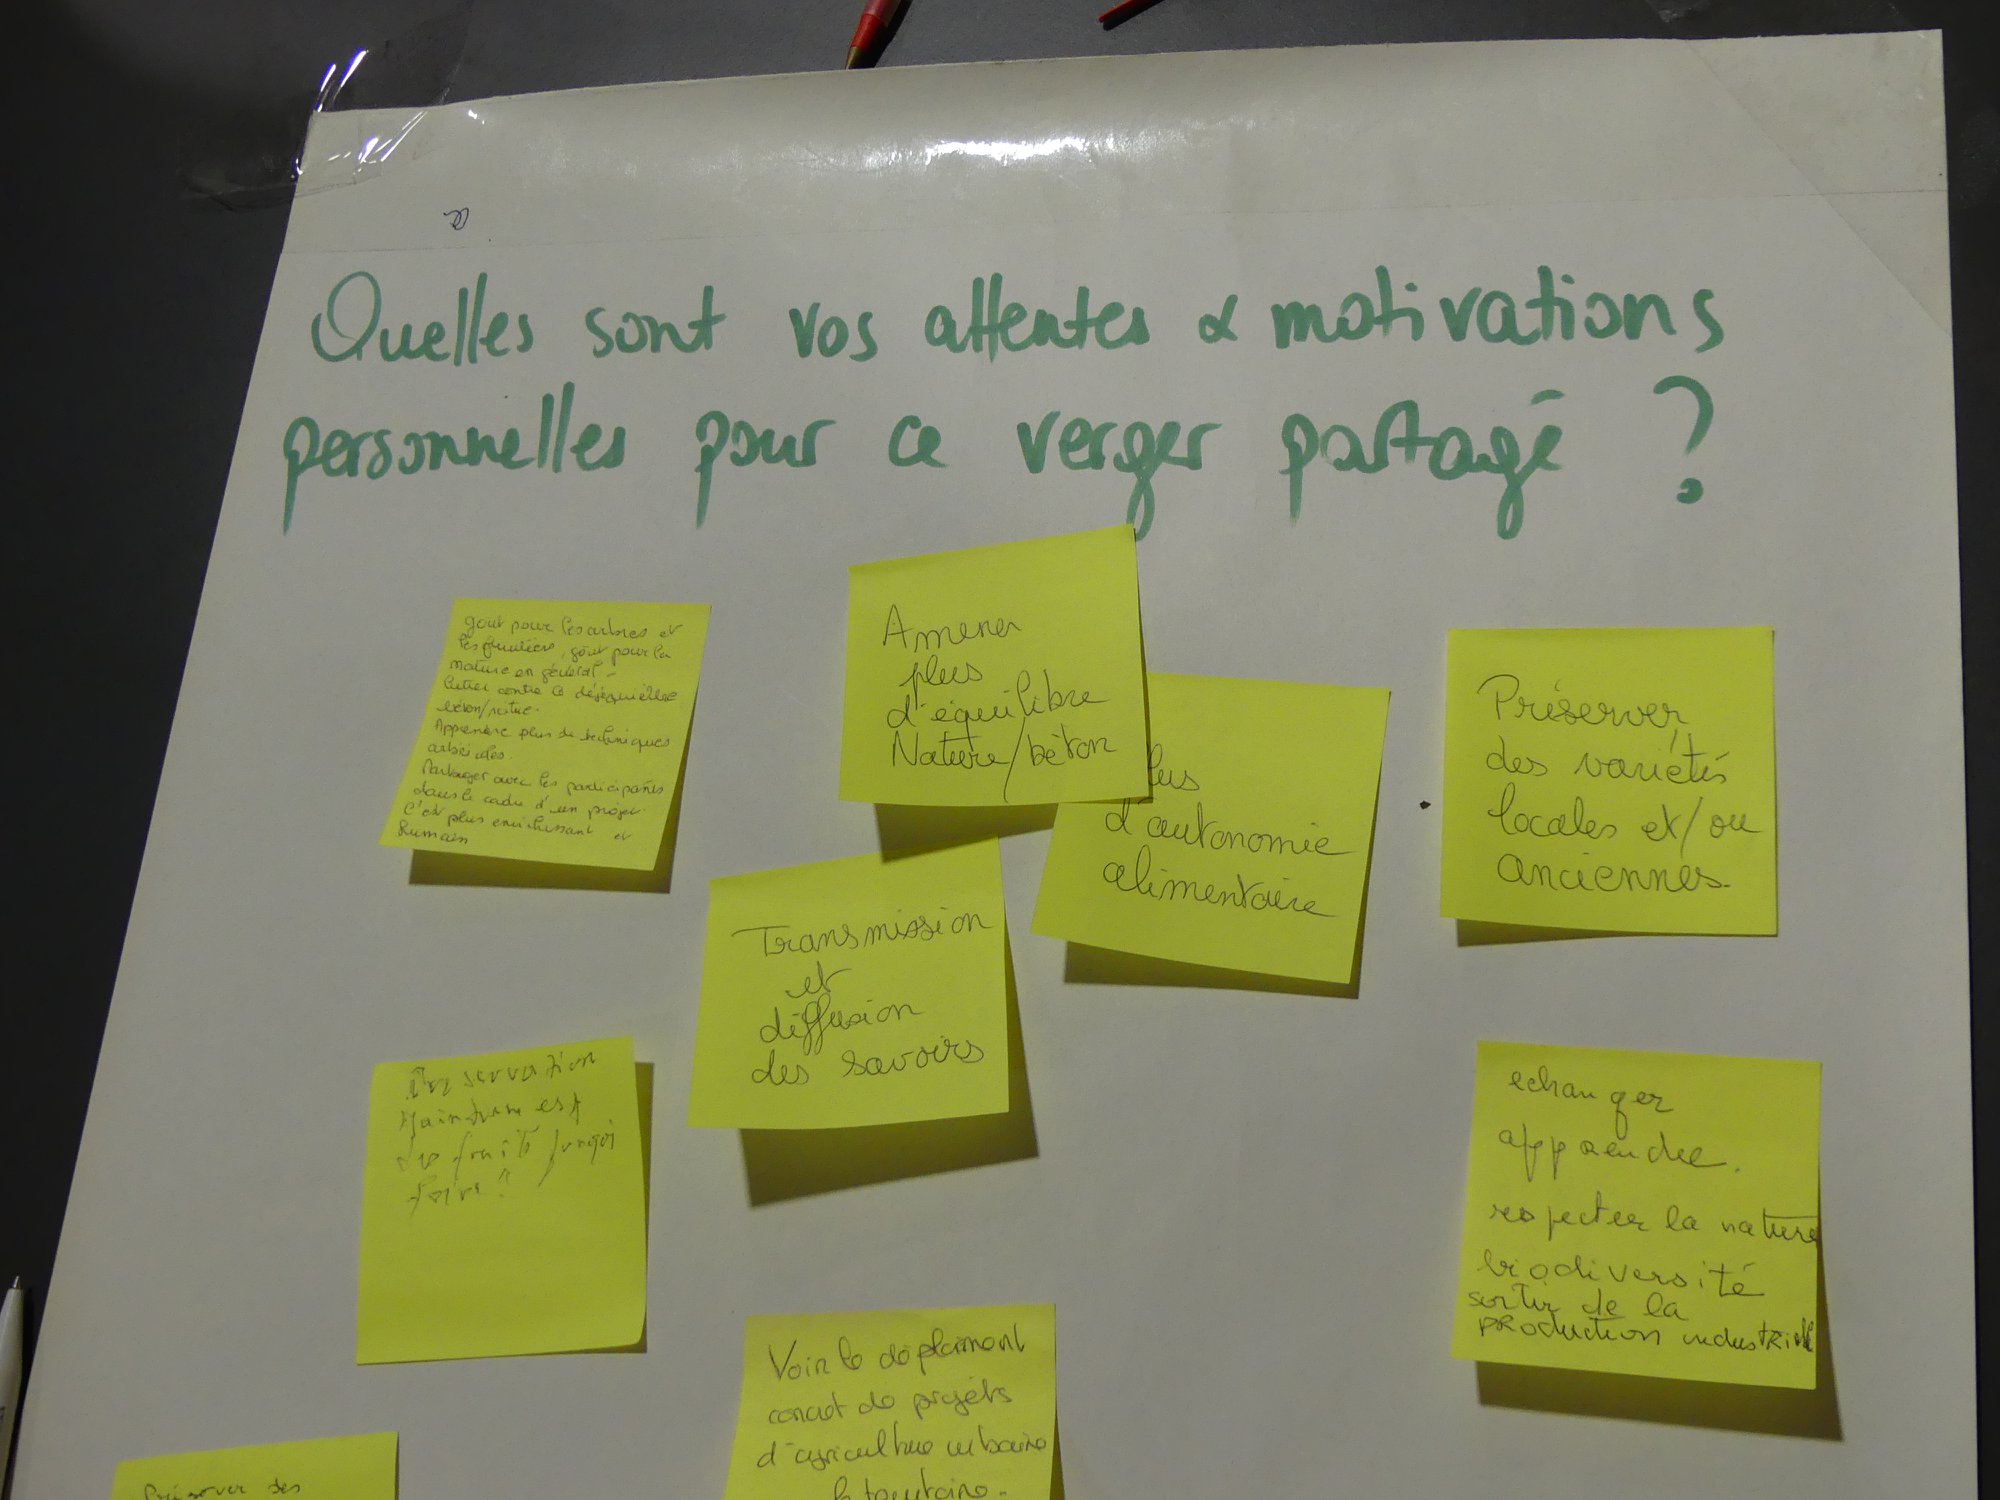 Quelles sont vos attentes & motivations
personnelles pour ce verger partagé ?
goût pour les arbres et
les fruitiers, goût pour la
nature en général -
lutter contre le déséquilibre
béton/nature.
Apprendre plus de techniques
Partager avec les participants
dans le cadre d'un projet
c'est plus enrichissant et
humain
Amener
plus
d'équilibre
Nature/béton
lus
d'autonomie
alimentaire
Préserver
des variétés
locales et/ou
anciennes.
Transmission
et
diffusion
des savoirs
des fruits
faire ?
echanger
apprendre.
respecter la nature
biodiversité
sortir de la
production industrielle
Voir le déploiement
concret de projets
d'agriculture urbaine
Préserver des